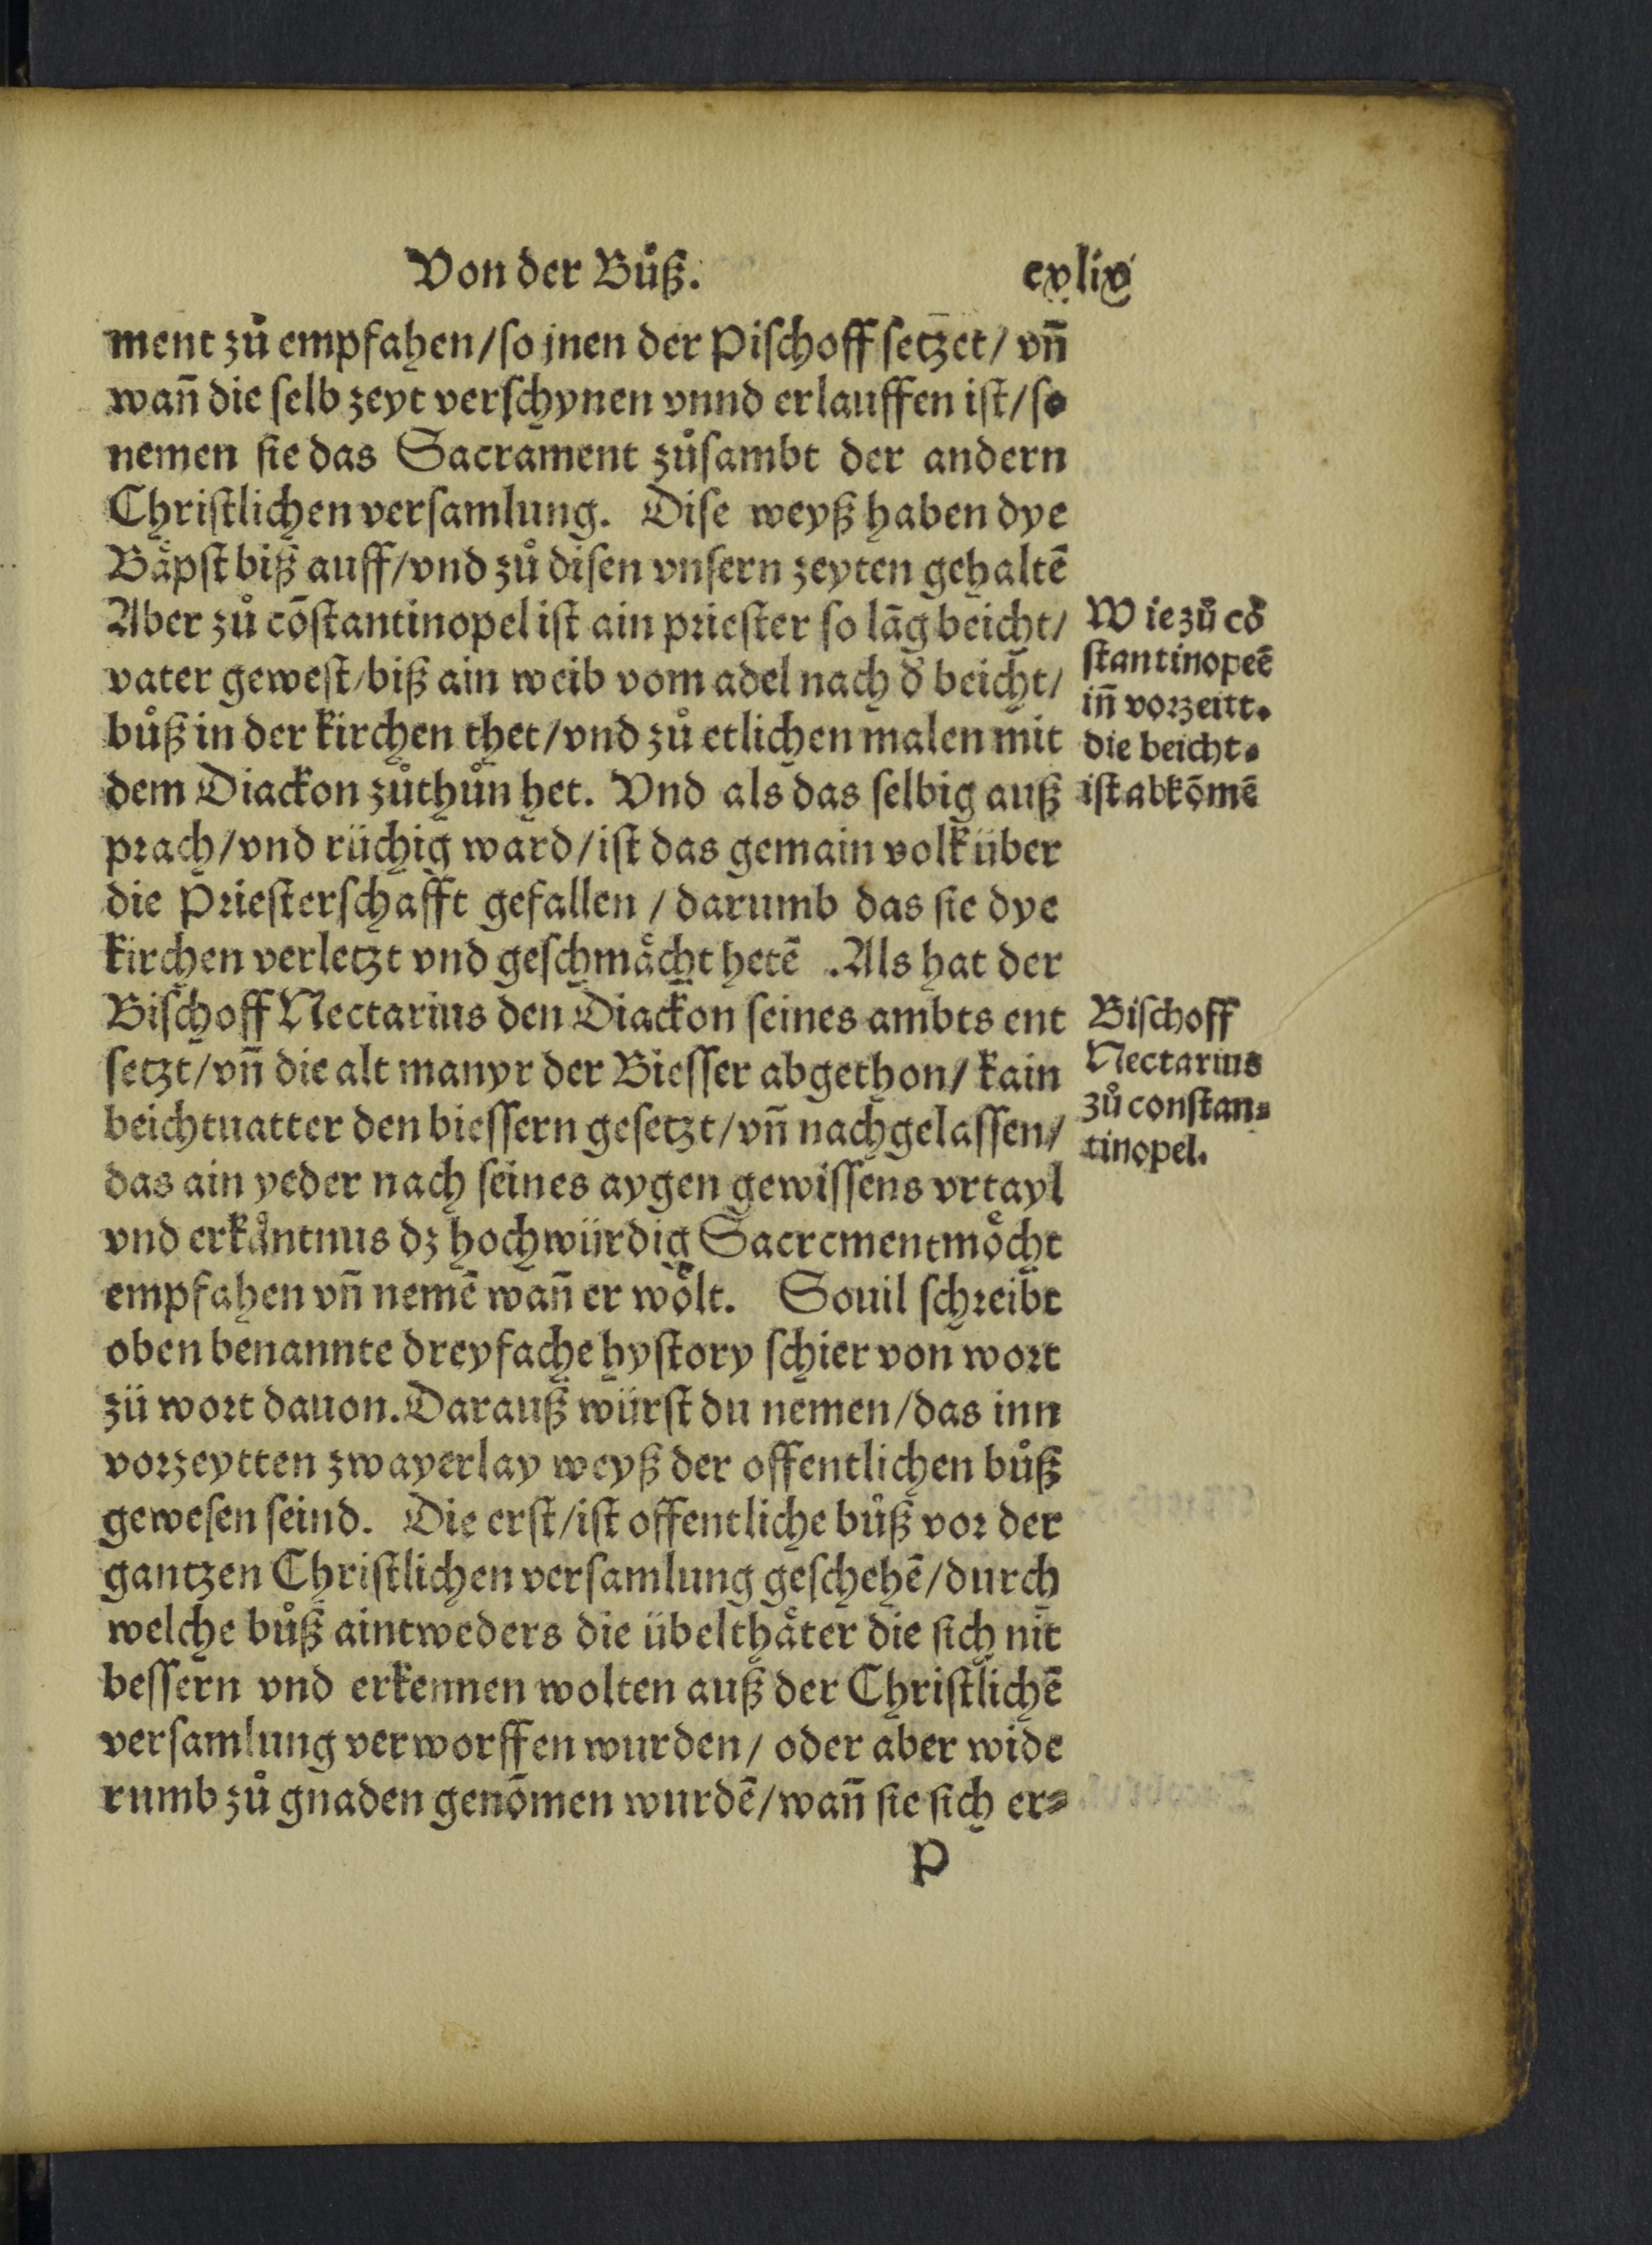 Von der Bůß. cxlix
ment zů empfahen/so jnen der Pischoff setzet/ vñ
wañ die selb zeyt verschynen vnnd erlauffen ist/so
nemen sie das Sacrament zůsambt der andern
Christlichen versamlung. Dise weyß haben dye
Baͤpst biß auff/vnd zů disen vnsern zeyten gehaltē
Aber zů cōstantinopel ist ain priester so lāg beicht/
vater gewest/biß ain weib vom adel nach d' beicht/
bůß in der kirchen thet/vnd zů etlichen malen mit
dem Diackon zůthůn het. Vnd als das selbig auß
prach/vnd rüchig ward/ist das gemain volk über
die Priesterschafft gefallen / darumb das sie dye
kirchen verletzt vnd geschmaͤcht hetē .Als hat der
Bischoff Nectarius den Diackon seines ambts ent
setzt/vñ die alt manyr der Biesser abgethon/ kain
beichtuatter den biessern gesetzt/vñ nachgelassen/
das ain yeder nach seines aygen gewissens vrtayl
vnd erkåntnus dz hochwürdig Sacrcment moͤcht
empfahen vñ nemē wañ er woͤlt. Souil schreibt
oben benannte dreyfache hystory schier von wort
zü wort dauon. Darauß würst du nemen/das inn
vorzeytten zwayerlay weyß der offentlichen bůß
gewesen seind. Die erst/ist offentliche bůß vor der
gantzen Christlichen versamlung geschehē/durch
welche bůß aintweders die übelthaͤter die sich nit
bessern vnd erkennen wolten auß der Christlichē
versamlung verworffen wurden/ oder aber wide
rumb zů gnaden genōmen wurdē/wañ sie sich er⸗
P
Wie zů cō
stantinopeē
iñ vorzeitt.
die beicht.
ist abkōmē
Bischoff
Nectarius
zů constan⸗
tinopel.